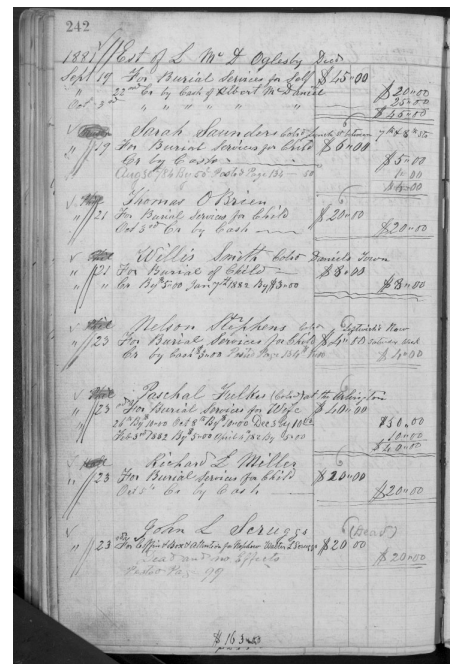 242
1881 Est of L Mc D Oglesby Died
Sept 19 For Burial Services for Self $45=00
" 22nd Cr by Cash of Albert McDaniel $20=00
Oct 3rd " " " " " " 25=00
$45=00
Sarah Saunders Cold 7th & 8th Sts
" 19 For Burial Services for Child $6=00
Cr by Cash $5=00
Page 134 1=00
Thomas O'Brien
" 21 For Burial Services for Child $20=00
Oct 3rd Cr by Cash $20=00
Willis Smith Cold Daniels Town
" 21 For Burial of Child $8=00
" " Cr By $5=00 Jany 7th 1882 By $3=00 $8=00
Nelson Stephens Row
" 23 For Burial Services for Child $4=00
Cr by Cash $3=00 Page 134 $4=00
Paschal Fulkes (Cold) at the Arlington
" 23 For Burial Services for Wife $40=00
26th By $10=00 Oct 8th By $10=00 Dec 3 By 10=00 $30=00
Feb 3rd 1882 By $5=00 April 82 By $5=00 10=00
$40=00
Richard L Miller
" 23 For Burial Services for Child $20=00
Oct Cr by Cash $20=00
John L Scruggs (Dead)
" 23 For Coffin & Box & attention for Nephew Walter L Scruggs $20=00
Dead and no Effects $20=00
99
$163=00